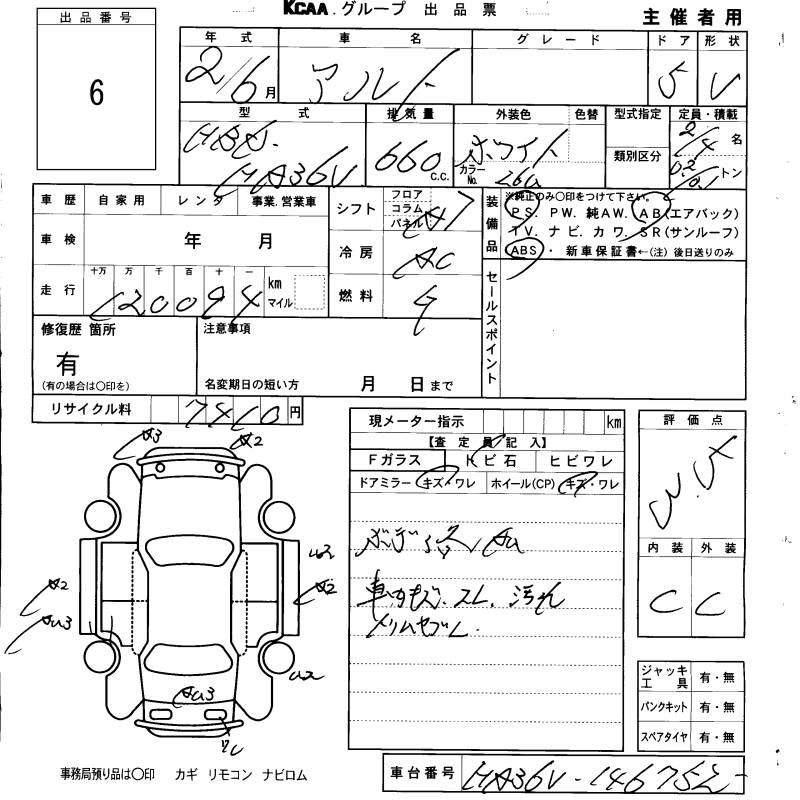 KCAA.グループ 出品票
主催者用
出品番号
6
年式 車名 グレード ドア 形状
2/6月 アルト 5 V
型式 排気量 外装色 色替 型式指定 定員・積載
HBD-
HA36V
660 c.c.
ホワイト
カラーNo. 26U
類別区分
2/4 名
0.2/0.1 トン
車歴 自家用 レンタ 事業.営業車
車検 年 月
走行 十万 万 千 百 十 一
120094 km マイル
シフト フロア コラム パネル
冷房 AC
燃料
装備品
※純正のみ○印をつけて下さい。
PS. PW. 純AW. AB(エアバック)
TV. ナビ. カワ. SR(サンルーフ)
ABS・ 新車保証書←(注) 後日送りのみ
セールスポイント
修復歴 箇所
有
(有の場合は○印を)
注意事項
名変期日の短い方 月 日まで
リサイクル料 7410 円
現メーター指示 km
【査定員記入】
Fガラス トビ石 ヒビワレ
ドアミラー キズ・ワレ ホイール(CP) キズ・ワレ
車内キズ、スレ、汚れ
評価点
内装 外装
C C
A3 A2
U2
A2 A2
AU3
U2
AU3
ジャッキ工具 有・無
パンクキット 有・無
スペアタイヤ 有・無
事務局預り品は○印 カギ リモコン ナビロム
車台番号 HA36V-146752